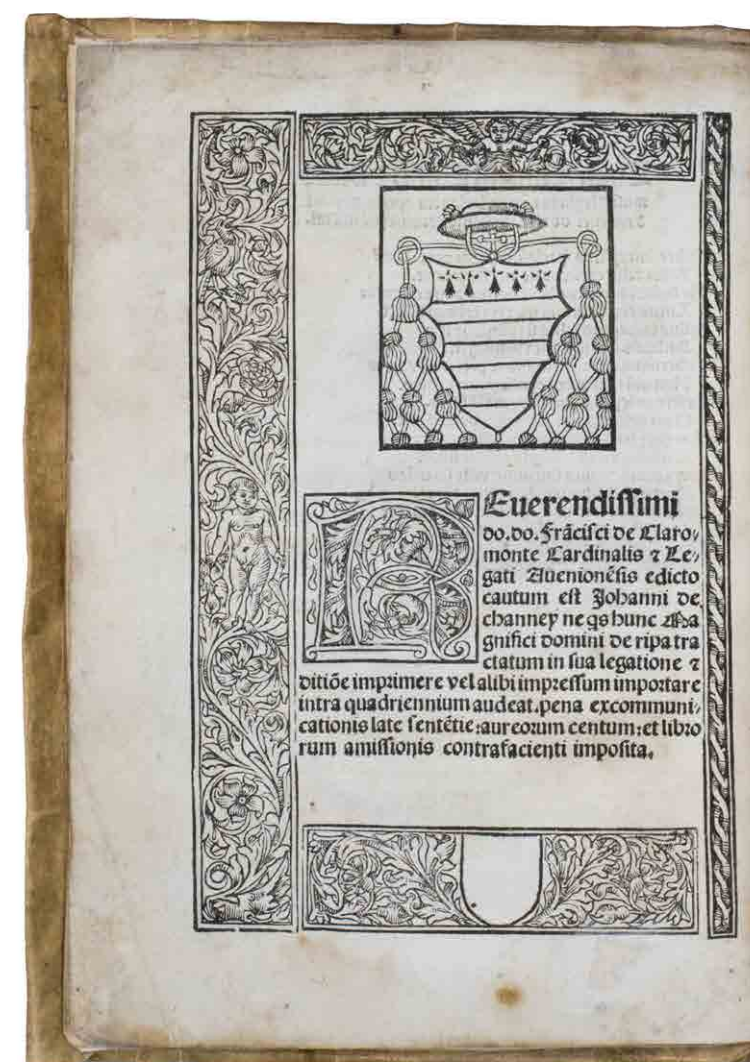 REuerendissimi
do.do. Frācisci de Claro-
monte Cardinalis ⁊ Le-
gati Auenionēsis edicto
cautum est Johanni de
channey ne qs hunc Ma
gnifici domini de ripa tra
ctatum in sua legatione ⁊
ditiōe imprimere vel alibi impressum importare
intra quadriennium audeat. pena excommuni-
cationis late sentētie: aureorum centum: et libro
rum amissionis contrafacienti imposita.